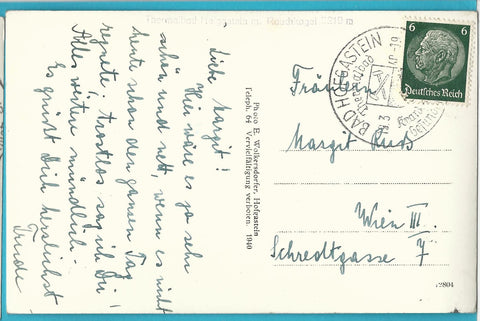 Thermalbad Hofgastein m. Rauchkogel 2210 m
Liebe Margit!
Hier wäre es ja sehr
schön und nett, wenn es nicht
heute schon den ganzen Tag
regnete; trostlos sag ich Dir!
Alles weitere mündlich.
Es grüßt Dich herzlichst
Trude
Photo E. Wolkersdorfer, Hofgastein
Teleph. 64 Vervielfältigung verboten 1940
BAD HOFGASTEIN
Thermalbad
6 6
Deutsches Reich
Fräulein
Margit Ruß
Wien III.
Schredtgasse 7
2804